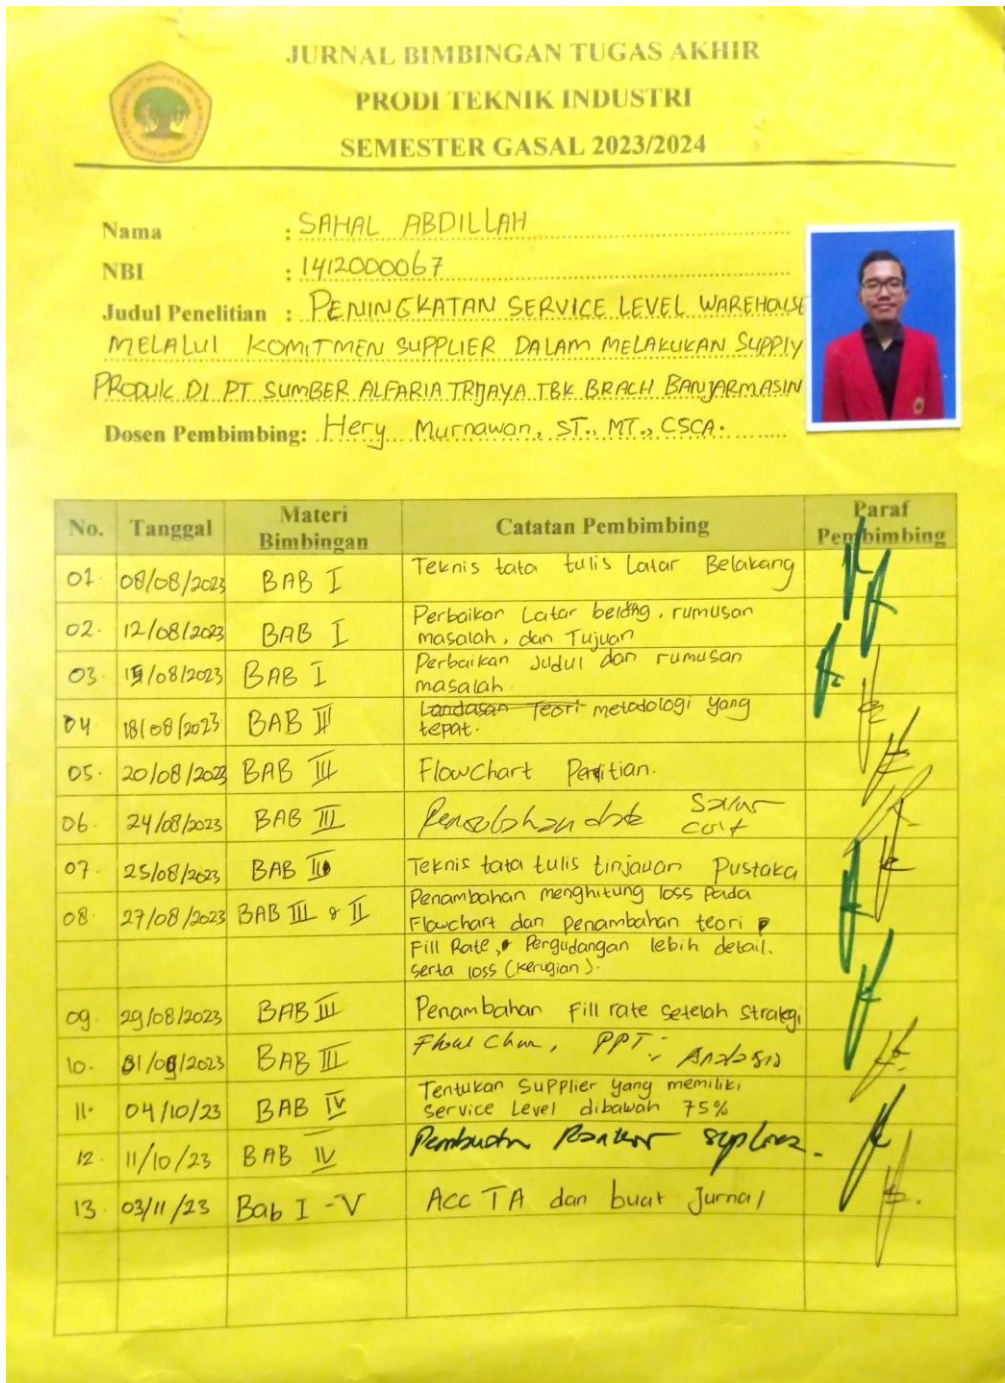 JURNAL BIMBINGAN TUGAS AKHIR
PRODI TEKNIK INDUSTRI
SEMESTER GASAL 2023/2024
Nama : SAHAL ABDILLAH
NBI : 1412000067
Judul Penelitian : PENINGKATAN SERVICE LEVEL WAREHOUSE
MELALUI KOMITMEN SUPPLIER DALAM MELAKUKAN SUPPLY
PRODUK DI PT SUMBER ALFARIA TRIJAYA TBK BRACH BANJARMASIN
Dosen Pembimbing: Hery Murnawan, ST., MT., CSCA.
No. Tanggal Materi Bimbingan Catatan Pembimbing Paraf Pembimbing
01. 08/08/2023 BAB I Teknis tata tulis Latar Belakang
02. 12/08/2023 BAB I Perbaikan Latar , rumusan
masalah, dan Tujuan
03. 15/08/2023 BAB I Perbaikan Judul dan rumusan
masalah.
04 18/08/2023 BAB III Landasan Teori metodologi yang
tepat.
05. 20/08/2023 BAB III FlowChart
06. 24/08/2023 BAB III
07. 25/08/2023 BAB II Teknis tata tulis tinjauan Pustaka
08 27/08/2023 BAB III & II Penambahan menghitung loss Pada
Flowchart dan penambahan teori
Fill Rate, Pergudangan lebih detail.
serta loss (kerugian).
09. 29/08/2023 BAB III Penambahan Fill rate setelah strategi
10. 31/08/2023 BAB III PPT
11. 04/10/23 BAB IV Tentukan Supplier yang memiliki
service Level dibawah 75%
12. 11/10/23 BAB IV
13. 03/11/23 Bab I - V Acc TA dan buat Jurnal